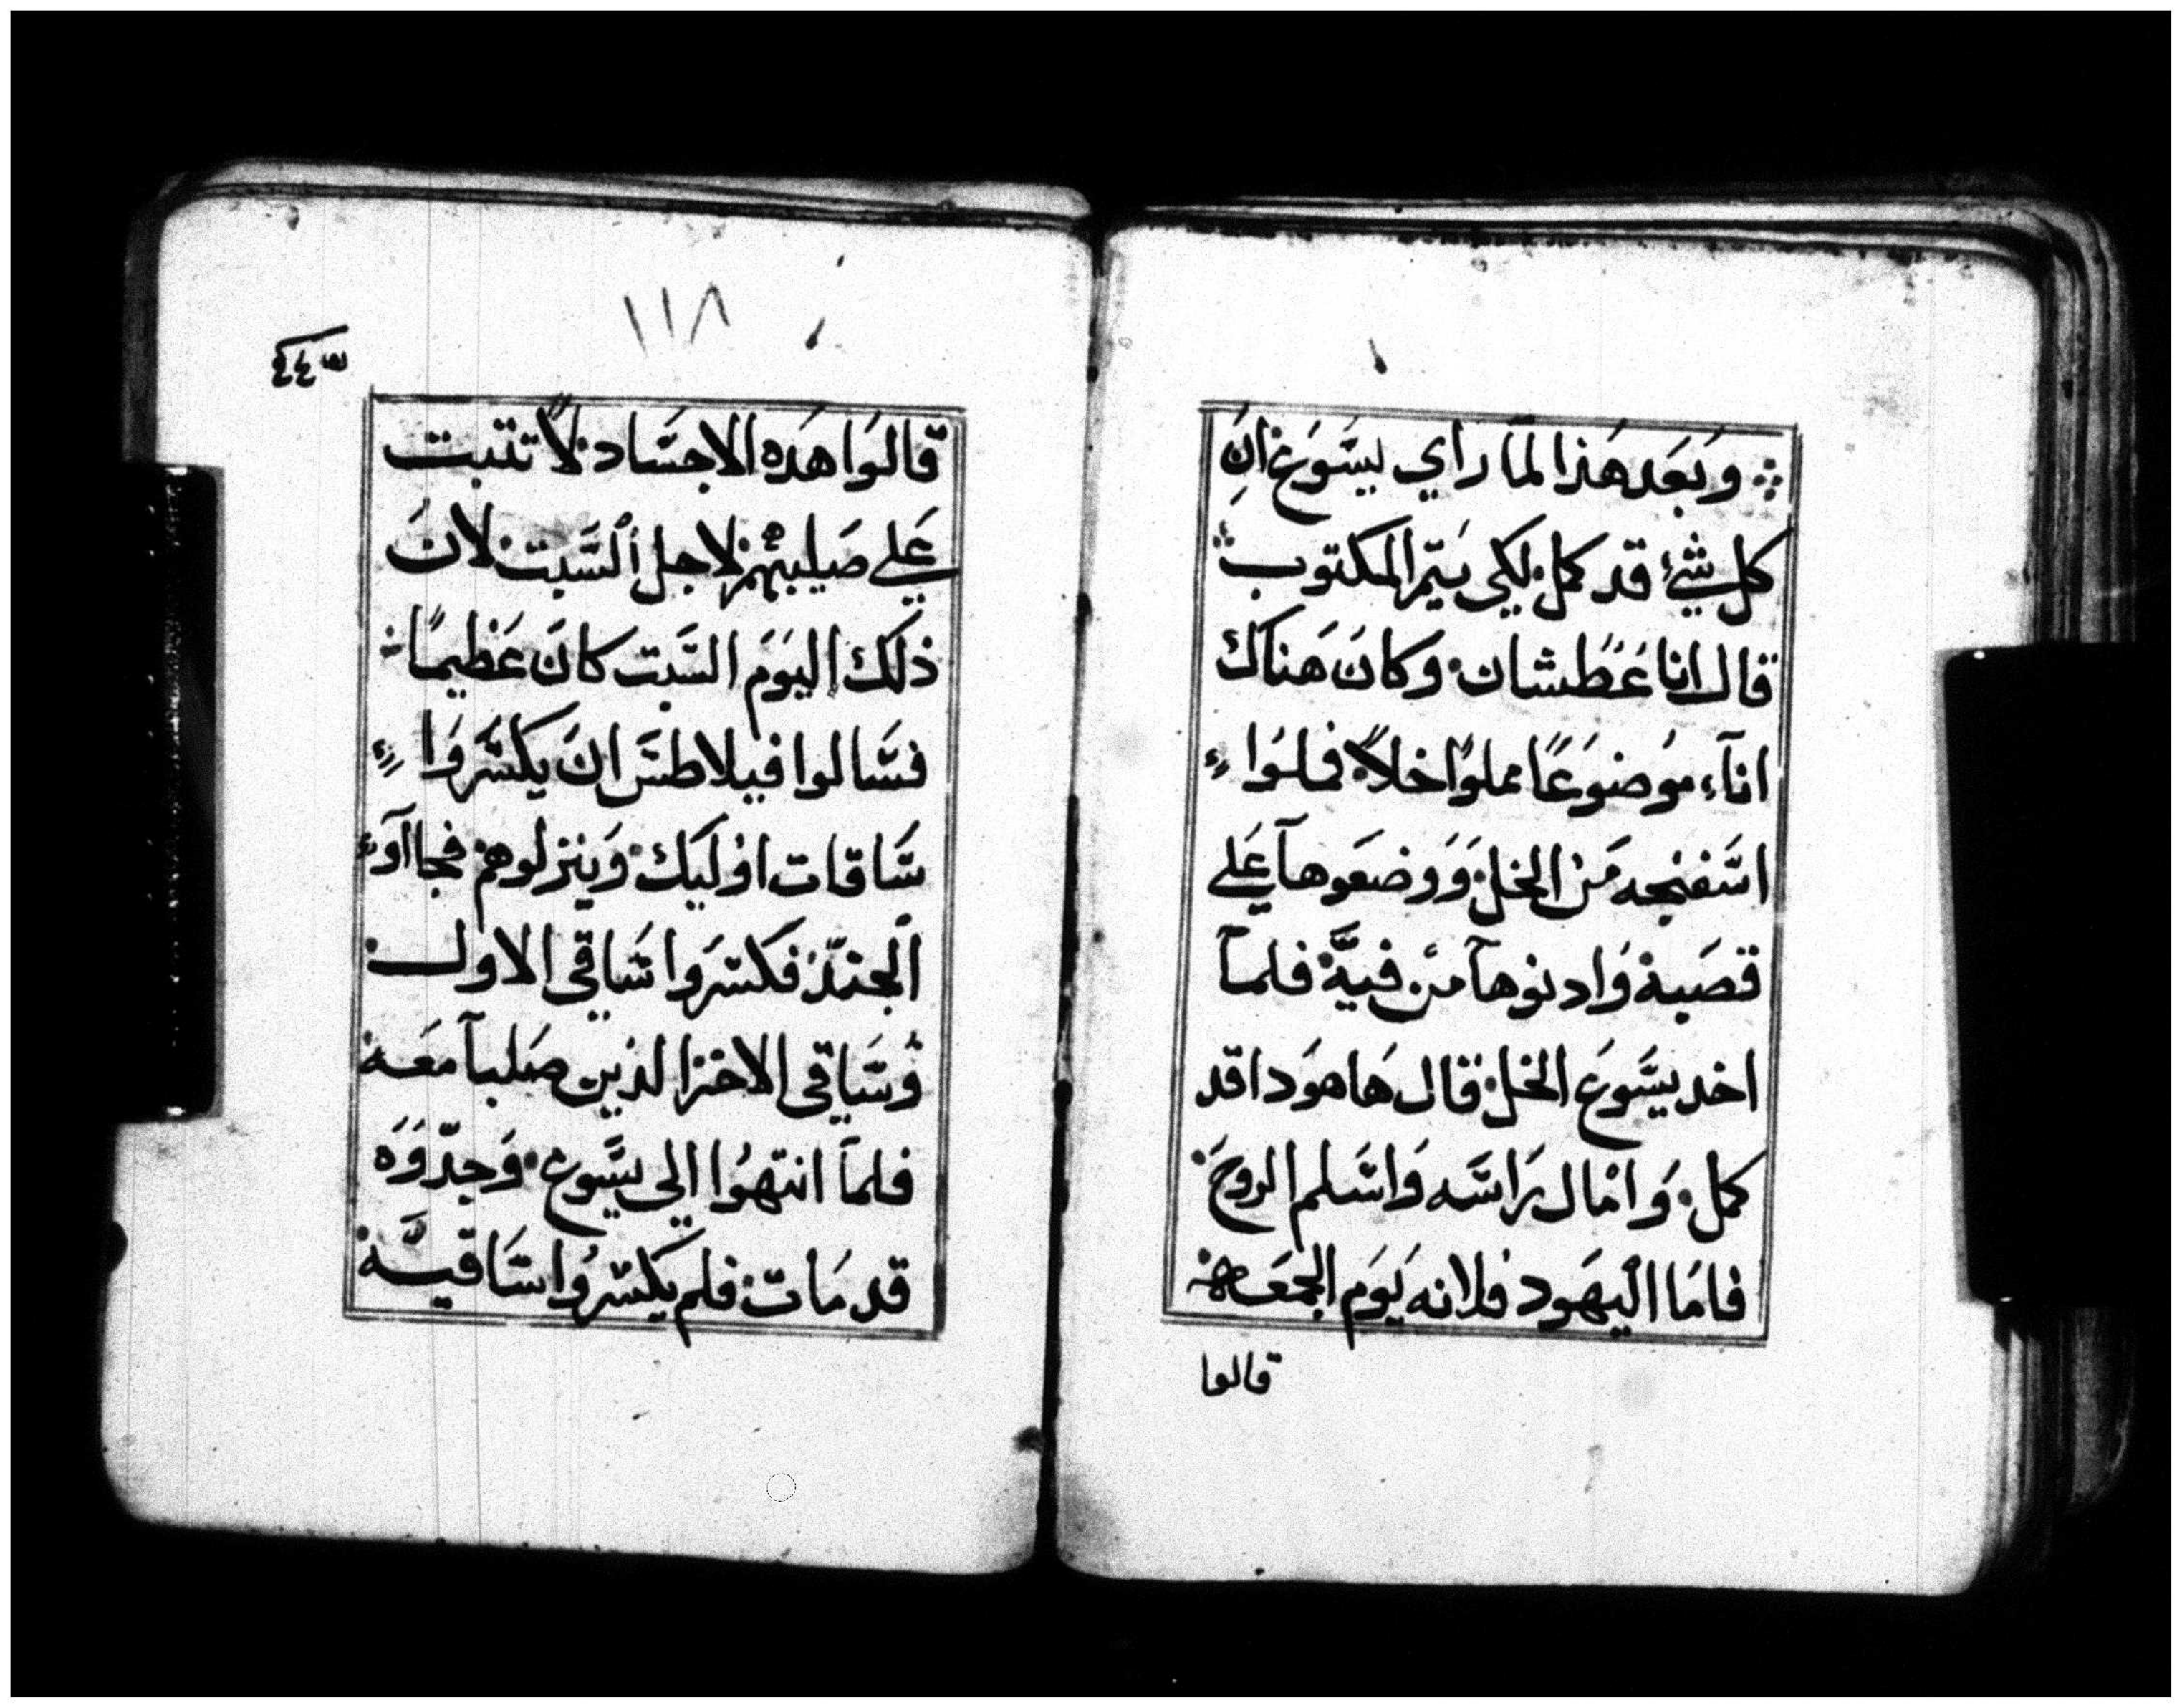 وبَعَد هَذا لمّا راي يسَّوَع انَ
كل شيء قد كمل لكي يتم المكتوب
قال انا عَطشان وكانَ هَناك
اناء موَضوَعًا مملوًا خلًا فملوا
اسَفنجه مَن الخل وَوَضعَوهاَ عَلي
قصَبة وَادنوهاَ من فيَّة فلماَ
اخد يسَّوَع الخل قال هَاهوَدا قد
كمل وَامال رَاسَه وَاسَلم الروحَ
فامَا اليهَود فلانه يَوَم الجمعَة
قالوا
١١٨
قالوَا هَده الاجسَاد لاً تتبت
عَلي صَليبهم لاجل السَّبت لان
ذلكَ اليوَمَ السَّبت كانَ عَظيمًا
فسَّالوا فيلاطسَ انَ يكسَّرَوا
سَّاقات اوُليَك وَينزلوهم فجاآوَء
الجند فكسَرَوا سَاقي الاول
وَسَّاقي الاخر الذين صَلباَ معَه
فلماَ انتهوُا الي يسَّوع وَجدّوَه
قد مَات فلم يكسَروُا سَّاقيَّه